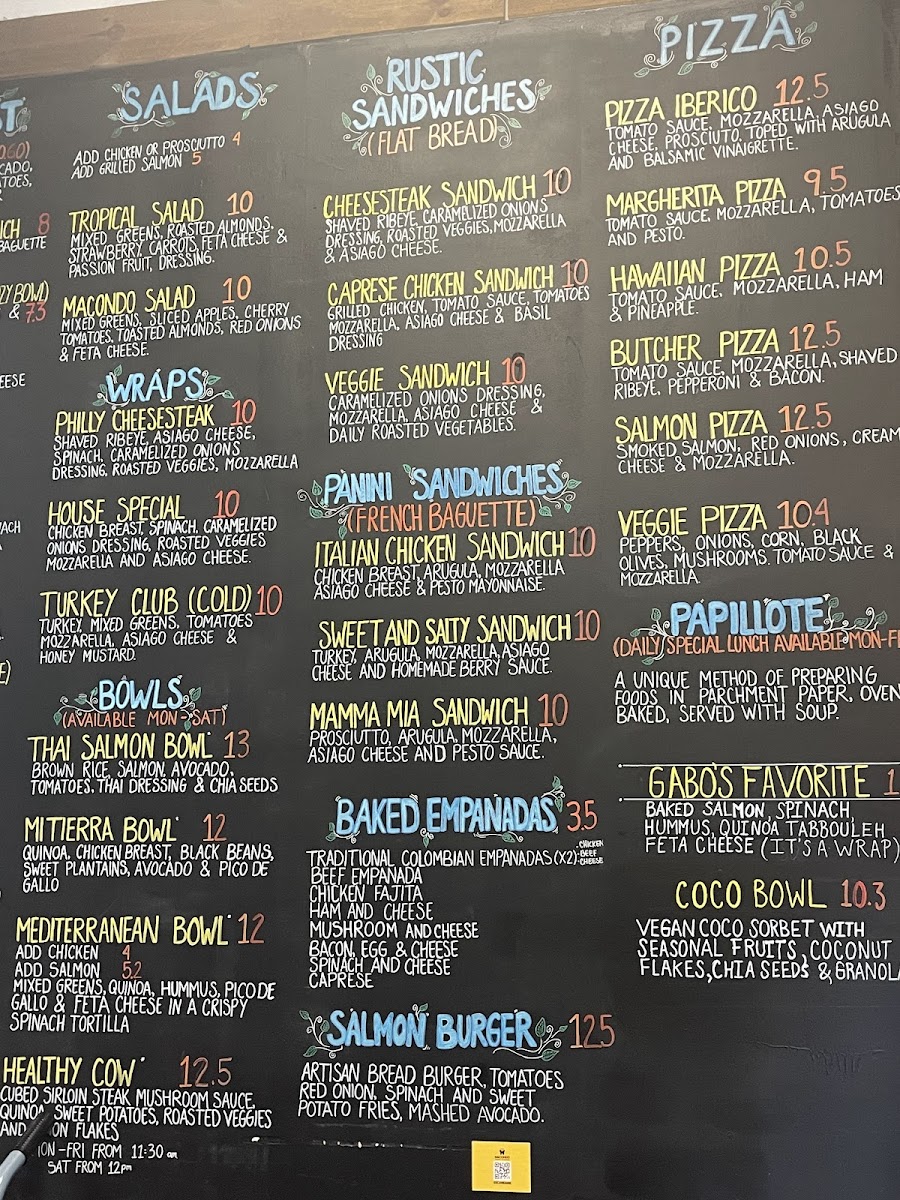 ST
CADO,
TOES,
ICH 8
BAGUETTE
ZY BOWL)
& 7.3
EESE
SALADS
ADD CHICKEN OR PROSCIUTTO 4
ADD GRILLED SALMON 5
TROPICAL SALAD 10
MIXED GREENS, ROASTED ALMONDS,
STRAWBERRY CARROTS, FETA CHEESE &
PASSION FRUIT, DRESSING.
MACONDO SALAD 10
MIXED GREENS, SLICED APPLES, CHERRY
TOMATOES, TOASTED ALMONDS, RED ONIONS
& FETA CHEESE.
WRAPS
PHILLY CHEESESTEAK 10
SHAVED RIBEYE, ASIAGO CHEESE,
SPINACH, CARAMELIZED ONIONS
DRESSING, ROASTED VEGGIES, MOZZARELLA
HOUSE SPECIAL 10
CHICKEN BREAST, SPINACH, CARAMELIZED
ONIONS DRESSING, ROASTED VEGGIES
MOZZARELLA AND ASIAGO CHEESE.
TURKEY CLUB (COLD) 10
TURKEY, MIXED GREENS, TOMATOES
MOZZARELLA, ASIAGO CHEESE &
HONEY MUSTARD.
BOWLS
(AVAILABLE MON-SAT)
THAI SALMON BOWL* 13
BROWN RICE, SALMON, AVOCADO,
TOMATOES, THAI DRESSING & CHIA SEEDS
MI TIERRA BOWL* 12
QUINOA, CHICKEN BREAST, BLACK BEANS,
SWEET PLANTAINS, AVOCADO & PICO DE
GALLO
MEDITERRANEAN BOWL* 12
ADD CHICKEN 4
ADD SALMON 5.2
MIXED GREENS, QUINOA, HUMMUS, PICO DE
GALLO & FETA CHEESE IN A CRISPY
SPINACH TORTILLA
HEALTHY COW* 12.5
CUBED SIRLOIN STEAK MUSHROOM SAUCE,
QUINOA, SWEET POTATOES, ROASTED VEGGIES
AND FLAKES
MON-FRI FROM 11:30 am
SAT FROM 12pm
RUSTIC
SANDWICHES
(FLAT BREAD)
CHEESESTEAK SANDWICH 10
SHAVED RIBEYE, CARAMELIZED ONIONS
DRESSING, ROASTED VEGGIES, MOZZARELLA
& ASIAGO CHEESE.
CAPRESE CHICKEN SANDWICH 10
GRILLED CHICKEN, TOMATO SAUCE, TOMATOES
MOZZARELLA, ASIAGO CHEESE & BASIL
DRESSING
VEGGIE SANDWICH 10
CARAMELIZED ONIONS DRESSING,
MOZZARELLA, ASIAGO CHEESE &
DAILY ROASTED VEGETABLES.
PANINI SANDWICHES
(FRENCH BAGUETTE)
ITALIAN CHICKEN SANDWICH 10
CHICKEN BREAST, ARUGULA, MOZZARELLA
ASIAGO CHEESE & PESTO MAYONNAISE.
SWEET AND SALTY SANDWICH 10
TURKEY, ARUGULA, MOZZARELLA, ASIAGO
CHEESE AND HOMEMADE BERRY SAUCE.
MAMMA MIA SANDWICH 10
PROSCIUTTO, ARUGULA, MOZZARELLA,
ASIAGO CHEESE AND PESTO SAUCE.
BAKED EMPANADAS 3.5
TRADITIONAL COLOMBIAN EMPANADAS (X2) -CHICKEN
-BEEF
-CHEESE
BEEF EMPANADA
CHICKEN FAJITA
HAM AND CHEESE
MUSHROOM AND CHEESE
BACON, EGG & CHEESE
SPINACH AND CHEESE
CAPRESE
SALMON BURGER 12.5
ARTISAN BREAD BURGER, TOMATOES
RED ONION, SPINACH AND SWEET
POTATO FRIES, MASHED AVOCADO.
PIZZA
PIZZA IBERICO 12.5
TOMATO SAUCE, MOZZARELLA, ASIAGO
CHEESE, PROSCIUTO, TOPED WITH ARUGULA
AND BALSAMIC VINAIGRETTE.
MARGHERITA PIZZA 9.5
TOMATO SAUCE, MOZZARELLA, TOMATOES
AND PESTO.
HAWAIIAN PIZZA 10.5
TOMATO SAUCE, MOZZARELLA, HAM
& PINEAPPLE.
BUTCHER PIZZA 12.5
TOMATO SAUCE, MOZZARELLA, SHAVED
RIBEYE, PEPPERONI & BACON.
SALMON PIZZA 12.5
SMOKED SALMON, RED ONIONS, CREAM
CHEESE & MOZZARELLA.
VEGGIE PIZZA 10.4
PEPPERS, ONIONS, CORN, BLACK
OLIVES, MUSHROOMS. TOMATO SAUCE &
MOZZARELLA.
PAPILLOTE
(DAILY SPECIAL LUNCH AVAILABLE MON-FRI
A UNIQUE METHOD OF PREPARING
FOODS IN PARCHMENT PAPER, OVEN
BAKED, SERVED WITH SOUP.
GABO'S FAVORITE 1
BAKED SALMON, SPINACH
HUMMUS, QUINOA TABBOULEH
FETA CHEESE (IT'S A WRAP)
COCO BOWL 10.3
VEGAN COCO SORBET WITH
SEASONAL FRUITS, COCONUT
FLAKES, CHIA SEEDS & GRANOLA